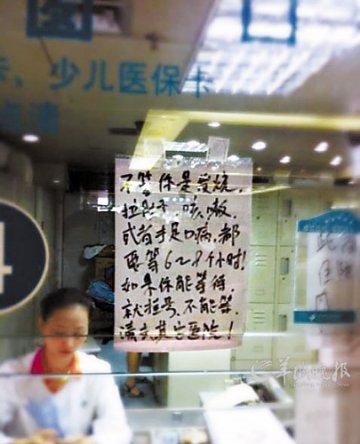 卡、少儿医保卡
点清
不管你是发烧、
拉肚子、咳嗽、
或者手足口病,都
要等6~8个小时!
如果你能等待,
就挂号,不能等,
请去其它医院!
4
羊城晚报